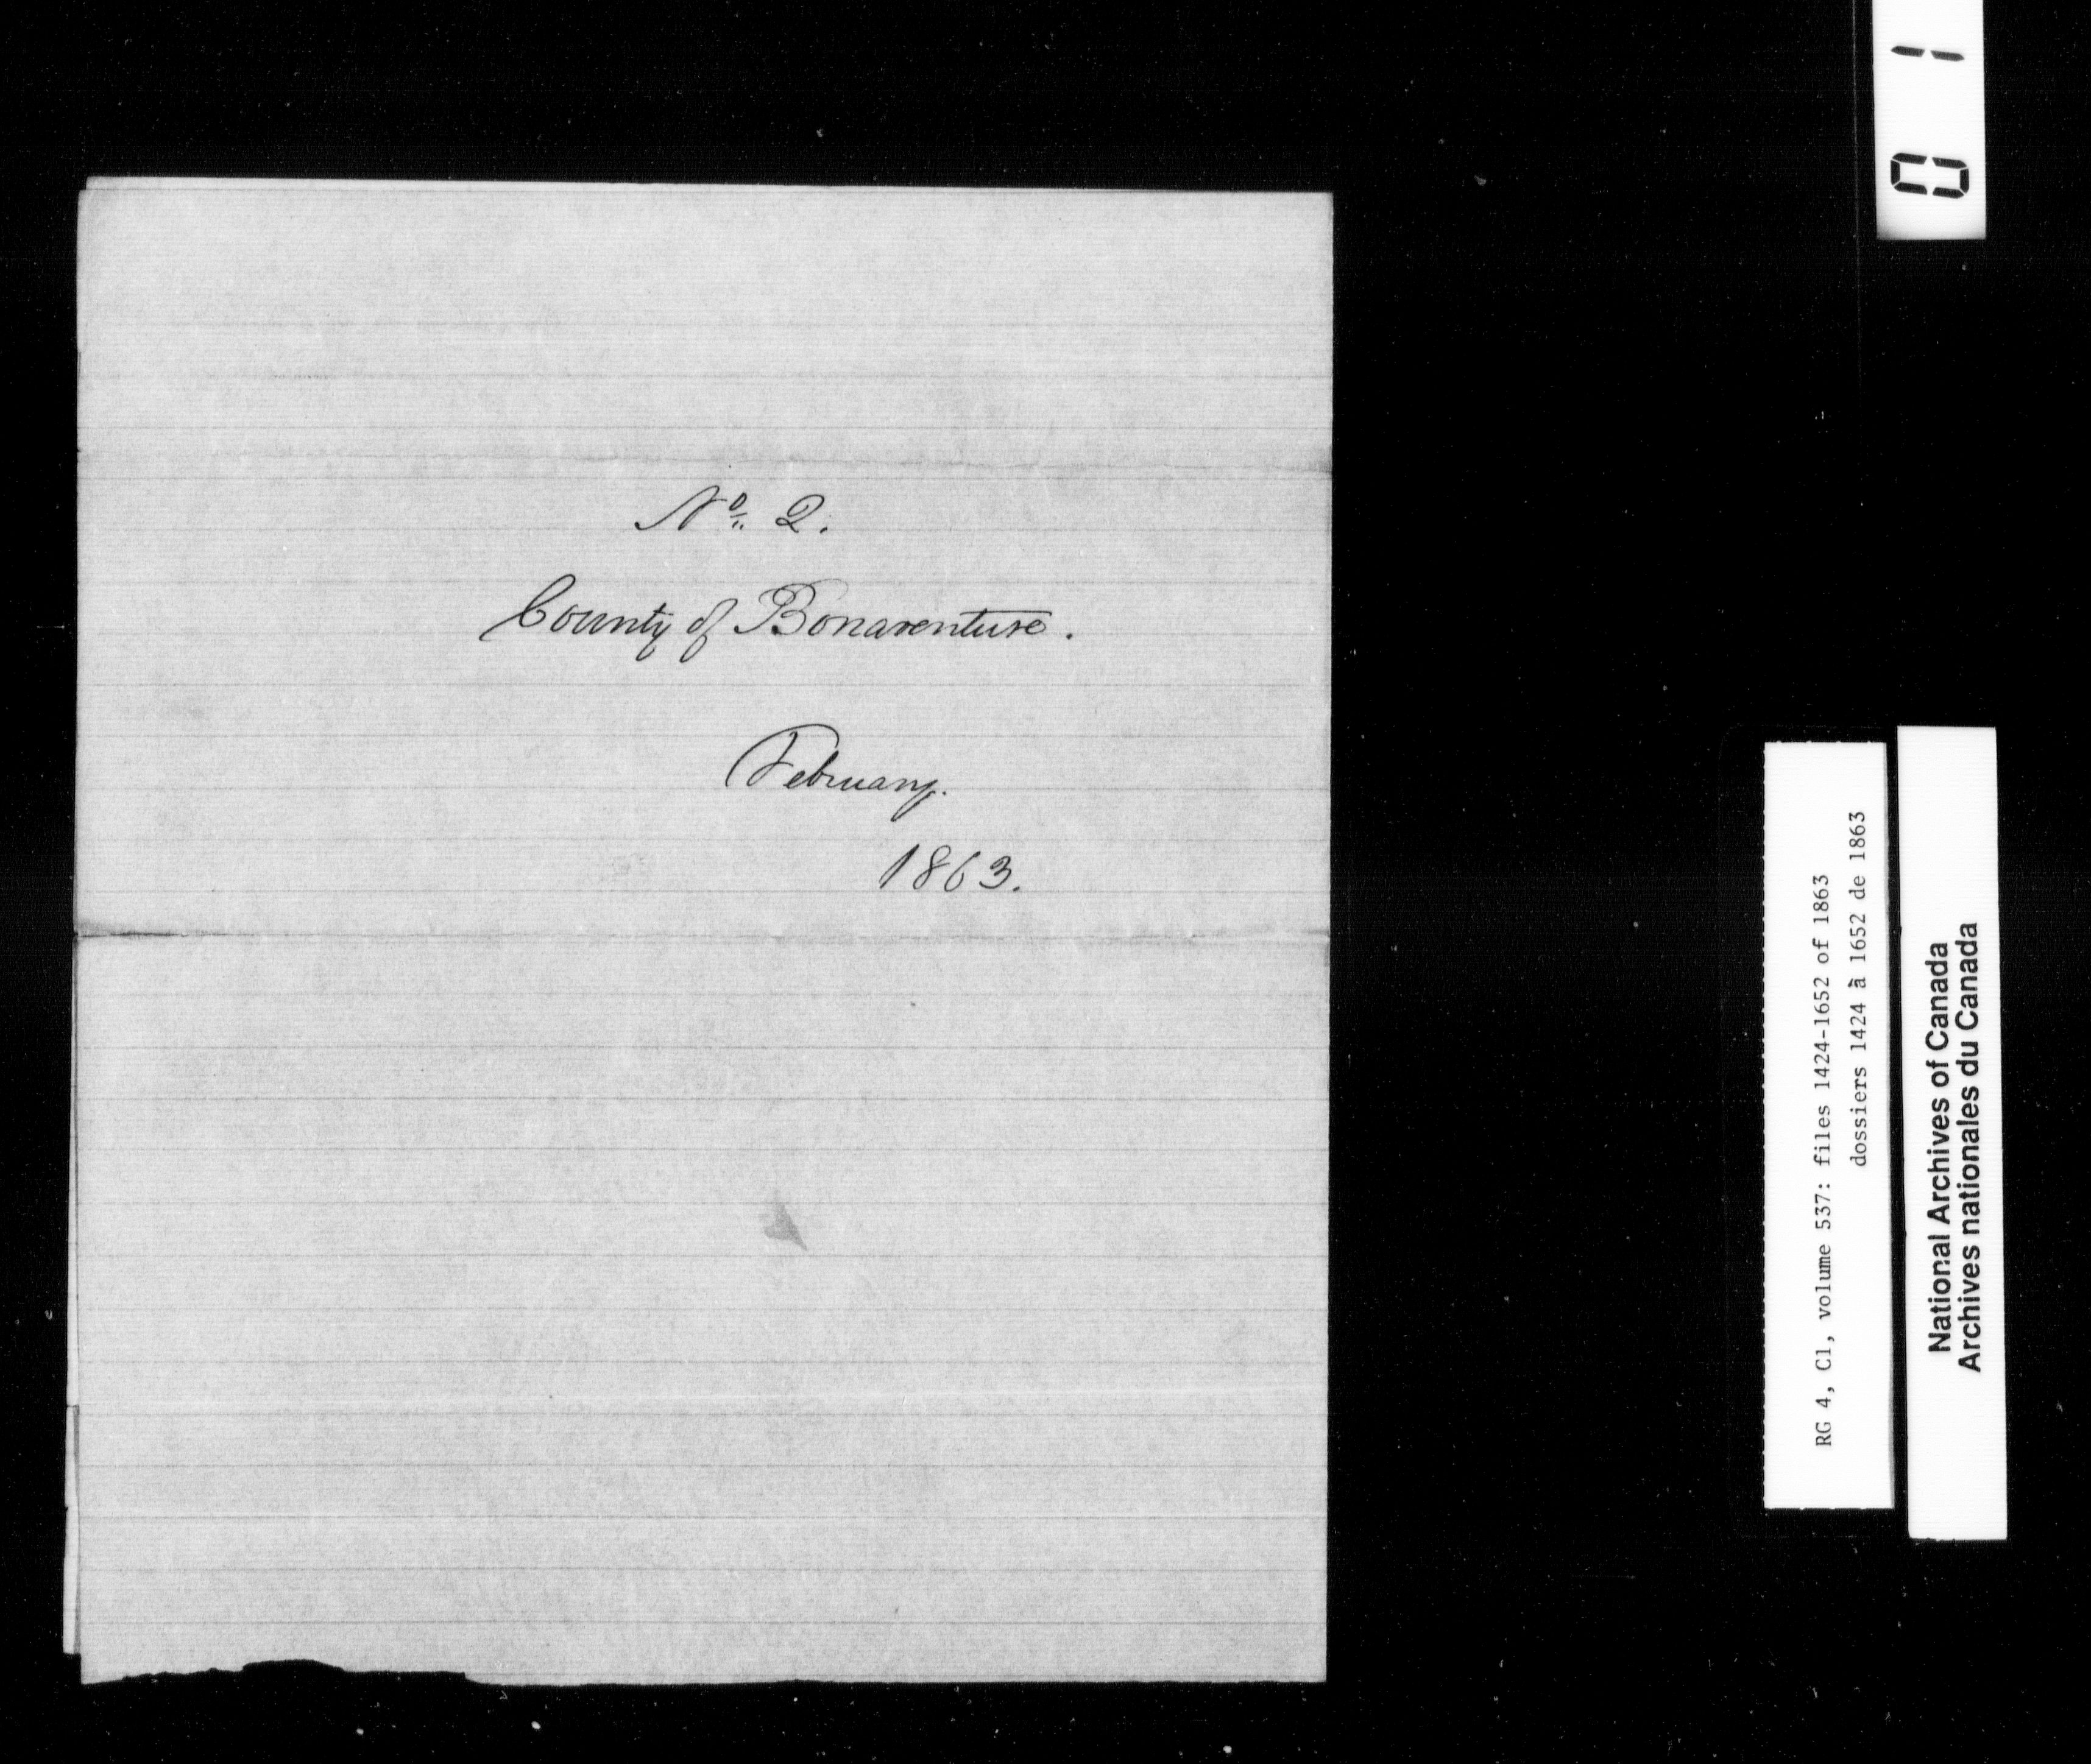 No. 2.
County of Bonaventure.
February.
1863.
RG 4, C1, volume 537: files 1424-1652 of 1863
dossiers 1424 à 1652 de 1863
National Archives of Canada
Archives nationales du Canada
0 1